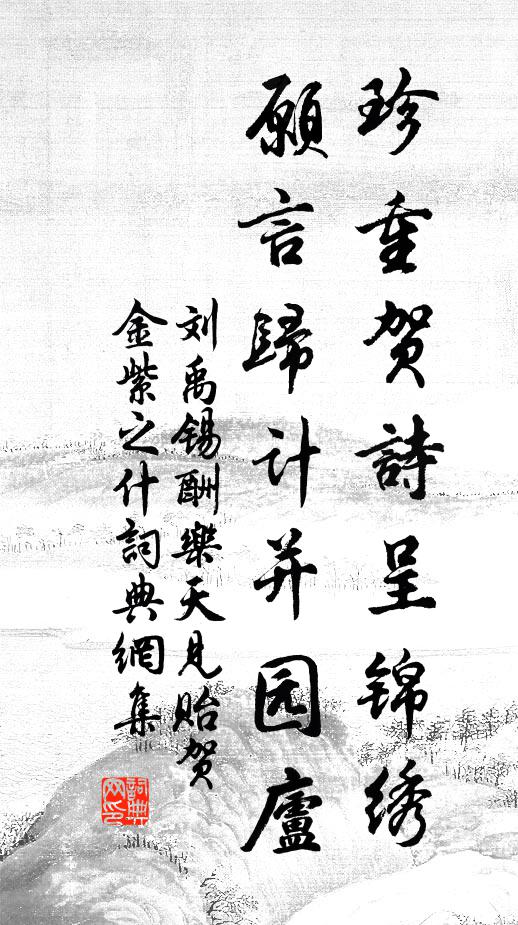 珍重贺詩呈锦绣
願言歸计并园廬
刘禹锡酬樂天見贻贺
金紫之什詞典網集
詞典网印